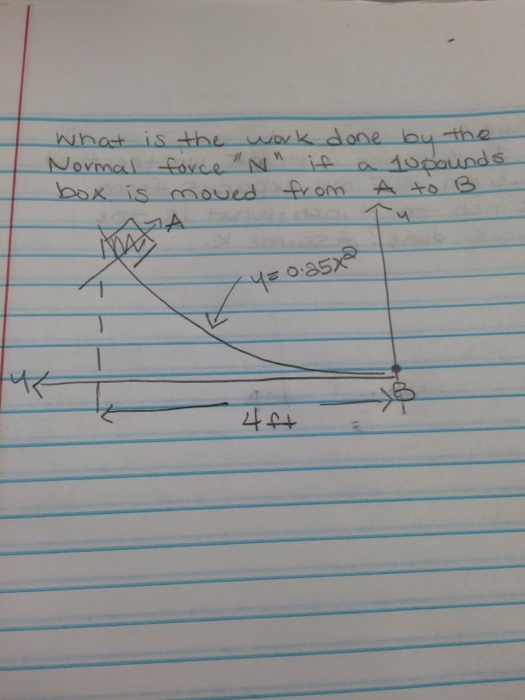 What is the work done by the
Normal force "N" if a 10pounds
box is moved from A to B
A
y
y = 0.25x²
y
B
4 ft